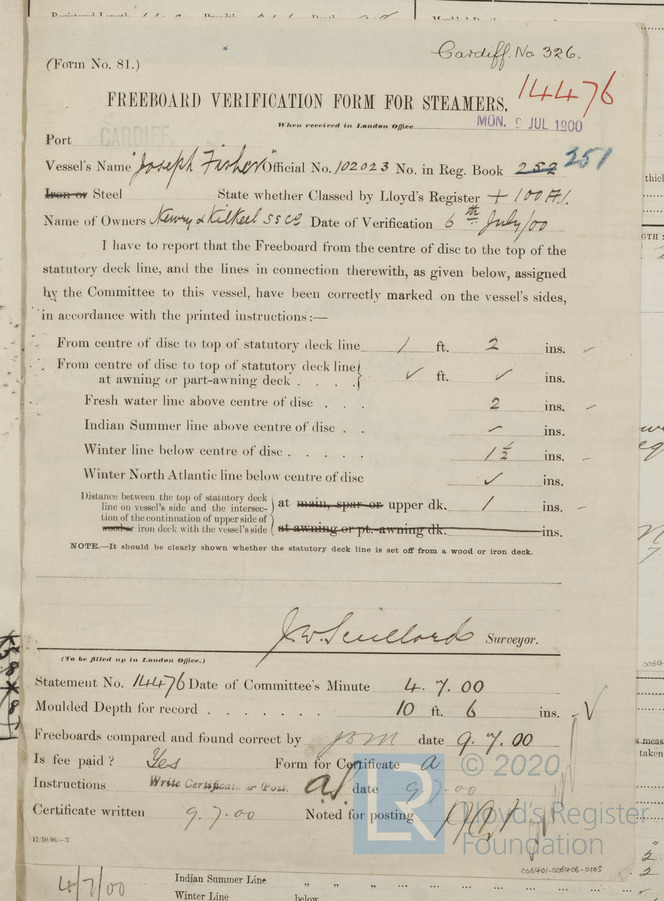 Cardiff. No. 326.
(Form No. 81.)
14476
FREEBOARD VERIFICATION FORM FOR STEAMERS.
When received in London Office
MON. 9 JUL 1900
Port CARDIFF
Vessel's Name "Joseph Fisher" Official No. 102023 No. in Reg. Book 252 251
Iron or Steel State whether Classed by Lloyd's Register + 100A1.
Name of Owners Newry & Kilkeel SS Co Date of Verification 6th July/00
I have to report that the Freeboard from the centre of disc to the top of the
statutory deck line, and the lines in connection therewith, as given below, assigned
by the Committee to this vessel, have been correctly marked on the vessel's sides,
in accordance with the printed instructions:—
From centre of disc to top of statutory deck line 1 ft. 2 ins. ✓
From centre of disc to top of statutory deck line
at awning or part-awning deck . . . . } ✓ ft. ✓ ins.
Fresh water line above centre of disc . . . 2 ins. ✓
Indian Summer line above centre of disc . . ✓ ins.
Winter line below centre of disc . . . . . 1½ ins.
Winter North Atlantic line below centre of disc ✓ ins.
Distance between the top of statutory deck
line on vessel's side and the intersec- at main, spar or upper dk. 1 ins.
tion of the continuation of upper side of
wood or iron deck with the vessel's side at awning or pt.-awning dk. ins.
NOTE.—It should be clearly shown whether the statutory deck line is set off from a wood or iron deck.
Surveyor.
(To be filled up in London Office.)
Statement No. 14476 Date of Committee's Minute 4. 7. 00
Moulded Depth for record . . . . . . . 10 ft. 6 ins. ✓
Freeboards compared and found correct by date 9. 7. 00
Is fee paid? Yes Form for Certificate a
Instructions Write Certificate & Post. date 9 7. 00
Certificate written 9. 7. 00 Noted for posting
17/10/98.—T
LR © 2020
Lloyd's Register
Foundation
005401-005406-0105
4/7/00
Indian Summer Line " " ...
Winter Line below